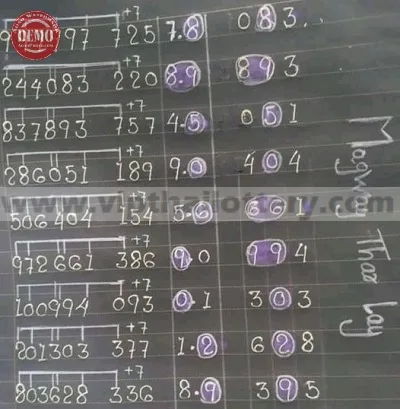 DEMO
97 725 +7 7.8 083..
244083 220 +7 8.9 893
837893 757 +7 4.5 051
286051 189 +7 9.0 404
506404 154 +7 5.6 661
972661 386 +7 9.0 994
100994 093 +7 0.1 303
201303 377 +7 1.2 628
803628 336 +7 8.9 395
Magway Thar Lay
www.vipthailottery.com